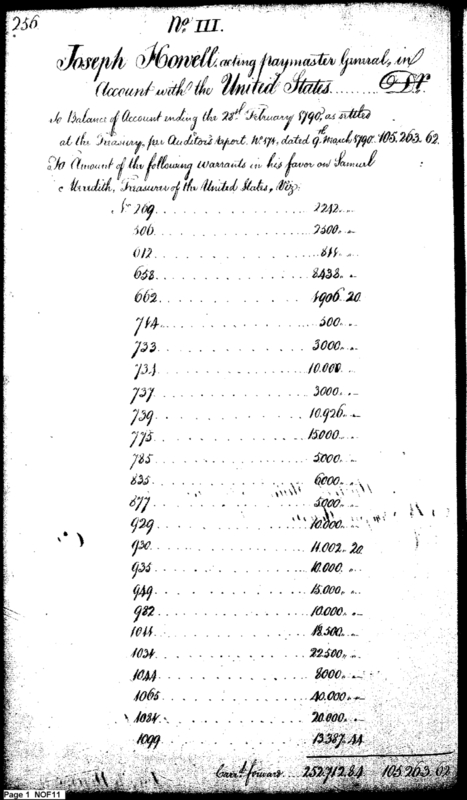 256
No. III.
Joseph Howell, acting paymaster General, in
Account with the United States Dr.
To Balance of Account ending the 28th February 1790, as settled
at the Treasury, per Auditor's Report No. 174, dated 9th March 1790. 105.263.62
To Amount of the following warrants in his favor on Samuel
Meredith, Treasurer of the United States, Viz:
No. 269 2242
506 2500
612 844
658 8438
662 4906.20
714 500
733 3000
734 10.000
737 3000
739 10.926
775 15000
785 5000
835 6000
877 5000
929 10.000
930 11.002.20
935 10.000
949 15.000
982 10.000
1011 18.500
1034 22500
1044 8000
1065 40.000
1084 20.000
1099 13.387.44
Carrd. forward 252.712.84 105.263.62
Page 1 NOF11